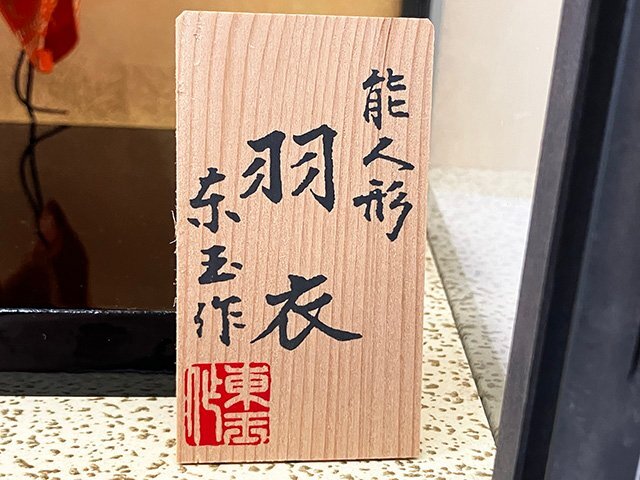 能人形
羽衣
东玉作
東玉作